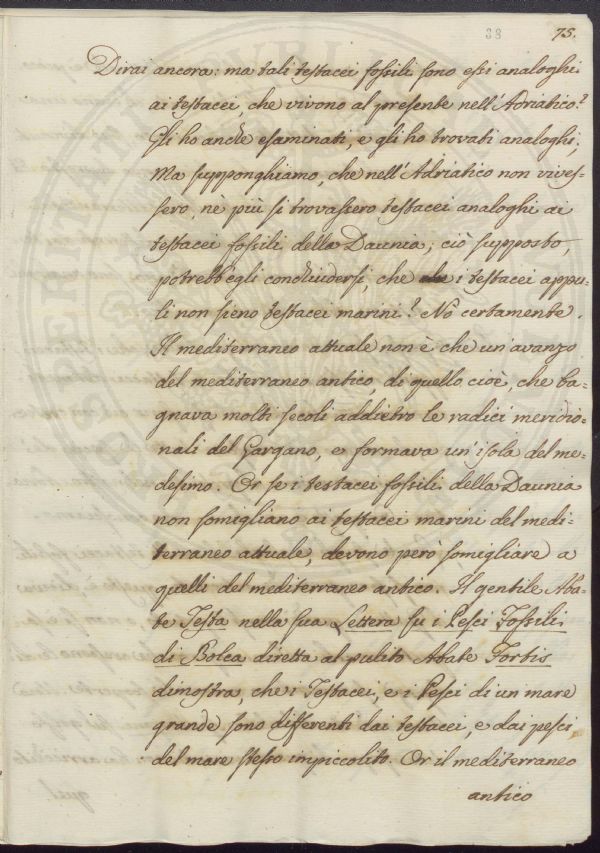 38 75.
Dirai ancora: ma tali testacei fossili sono essi analoghi
ai testacei, che vivono al presente nell'Adriatico?
Gli ho anche esaminati, e gli ho trovati analoghi;
Ma supponghiamo, che nell'Adriatico non vives=
sero, ne più si trovassero testacei analoghi ai
testacei fossili della Daunia; ciò supposto,
potrebb'egli conchiudersi, che i testacei appu=
li non sieno testacei marini? No certamente.
Il mediterraneo attuale non è che un'avanzo
del mediterraneo antico, di quello cioè, che ba=
gnava molti secoli addietro le radici meridio=
nali del Gargano, e formava un'isola del me=
desimo. Or se i testacei fossili della Daunia
non somigliano ai testacei marini del medi=
terraneo attuale, devono però somigliare a
quelli del mediterraneo antico. Il gentile Aba=
te Testa nella sua Lettera su i Pesci Fossili
di Bolca diretta al pulito Abate Fortis
dimostra, che i Testacei, e i Pesci di un mare
grande sono differenti dai testacei, e dai pesci,
del mare stesso impiccolito. Or il mediterraneo
antico